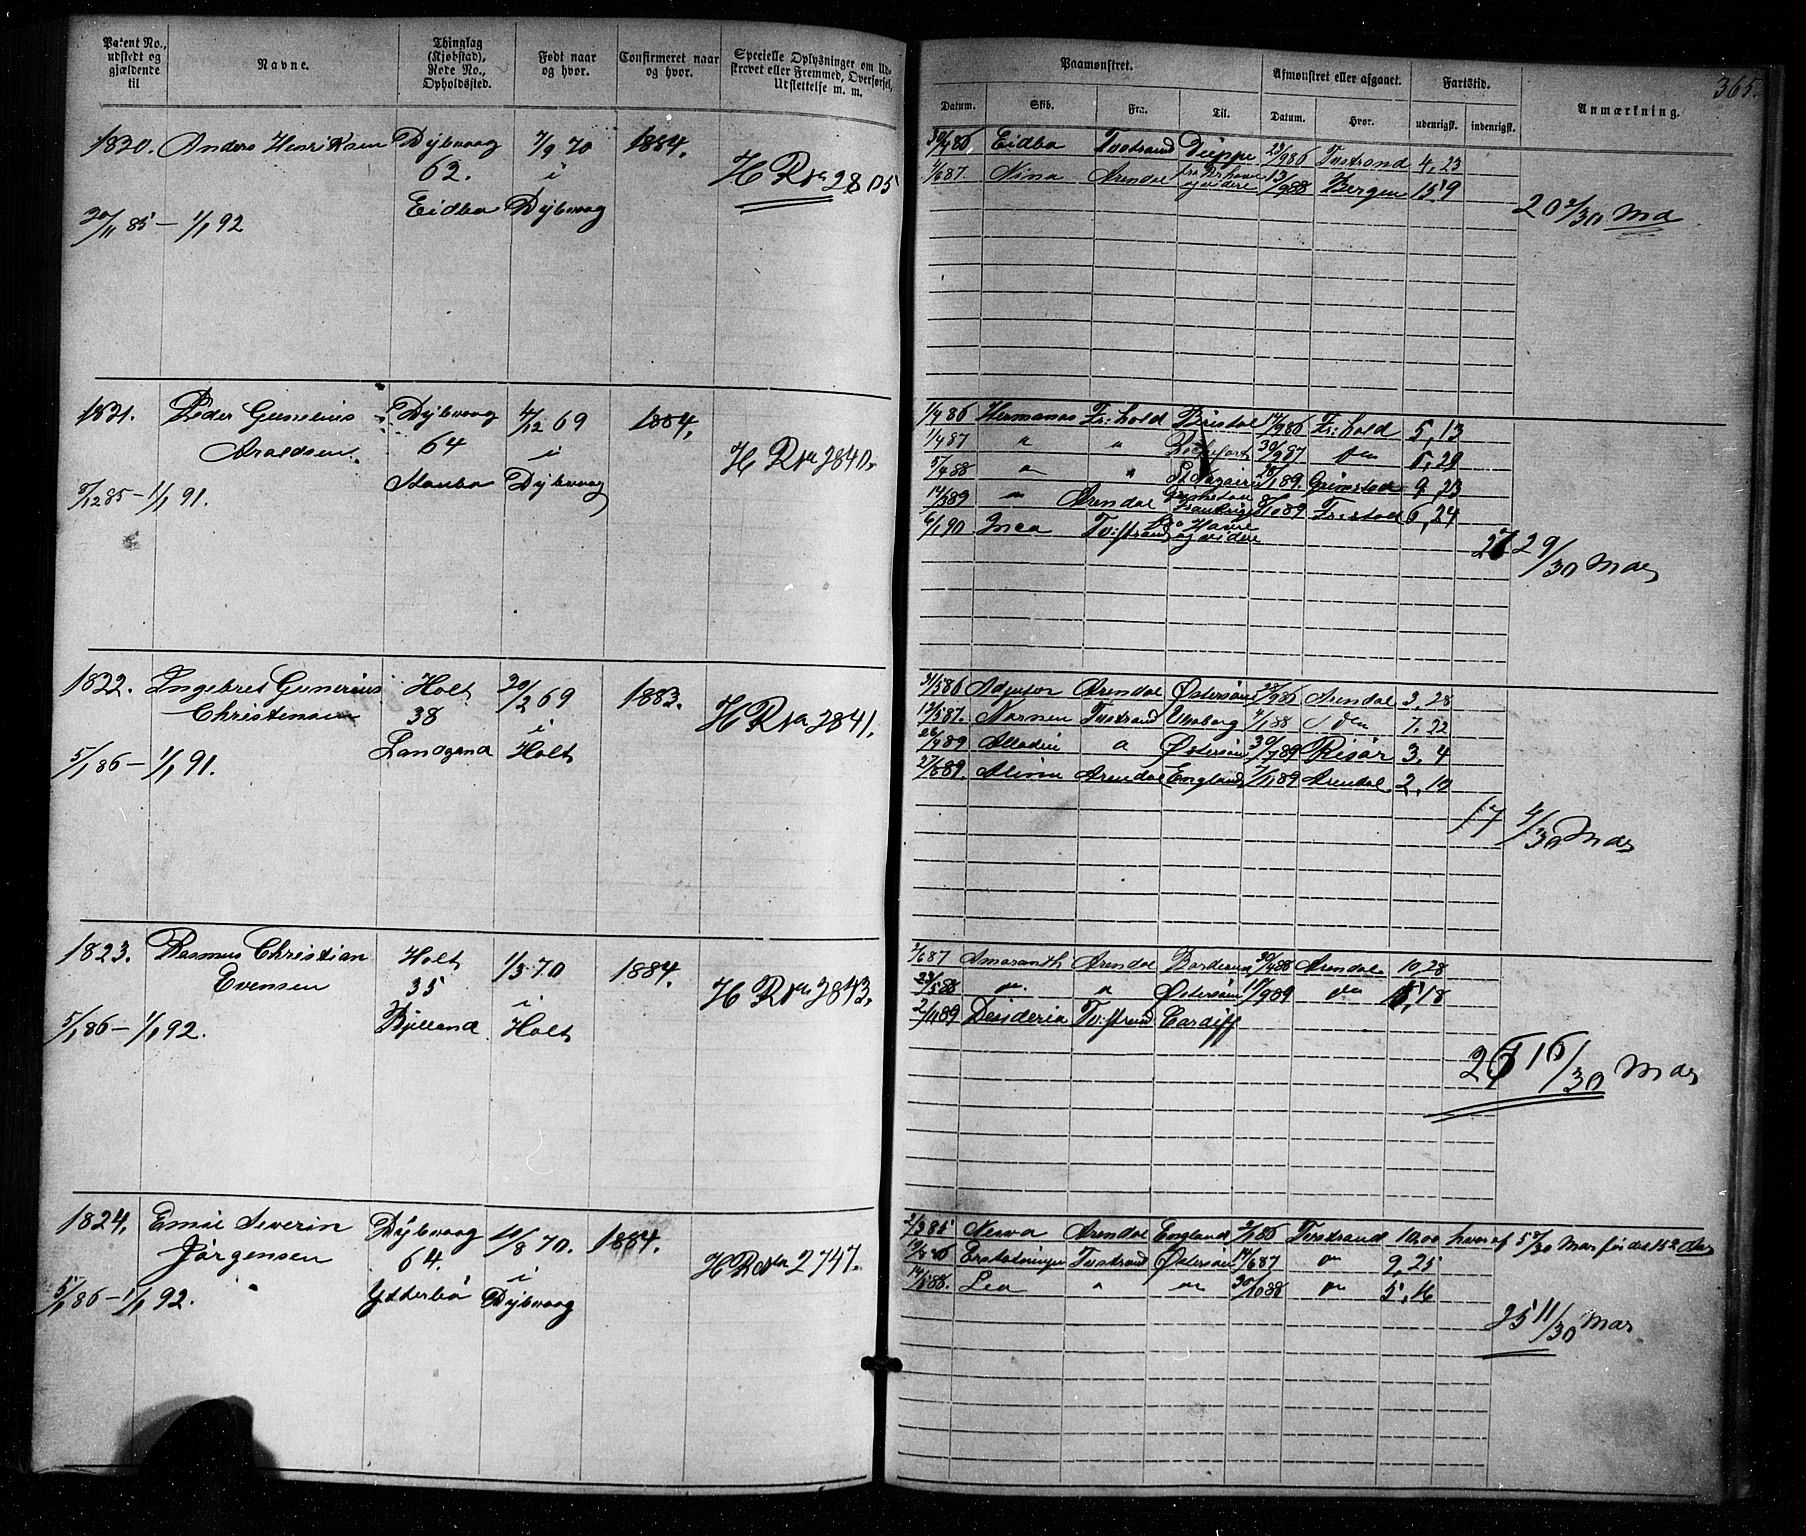 Patent No., udstedt og gjældende til
Navne.
Thinglag (Kjøbstad), Rode No., Opholdssted.
Født naar og hvor.
Confirmeret naar og hvor.
Specielle Oplysninger om Udskrevet eller Fremmed, Overførsel, Udslettelse m. m.
Paamønstret.
Afmønstret eller afgaaet.
Fartstid.
Anmærkning.
365.
Datum. Skib. Fra. Til. Datum. Hvor. udenrigsk. indenrigsk.
1820. Anders Henriksen Dybvaag 7/9 70 1884.
62. i H R No 2805
Eidbo Dybvaag
20/11 85 – 1/1 92
30/4 86 Eidbo Tvstrand Dieppe 23/9 86 Tvstrand 4,23
1/6 87. Nina Arendal 13/9 88 Bergen 15 9
20 2/30 Md
1821. Peder Gunelius Dybvaag 4/12 69 1884.
Araldsen. 64 i H R No 2840.
Staubo Dybvaag
8/12 85 – 1/1 91.
1/4 86 Hermanos Fr:hold Bristol 17/9 86 Fr:hald 5,13
1/4 87 " " Rochefort 30/9 87 do 5,29
5/4 88 " " St Nazaire 28/1 89. Grimstad 9,23
14/3 89 " Arendal 8/10 89 Fr:stad 6,24
6/1 90 Inca Tv:strand Havre
og videre
27 29/30 Mdr
1822. Ingebret Gunerius Holt 20/2 69 1883.
Christensen 38 i H R No 2841.
Landgand Holt
5/1 86 – 1/1 91.
31/5 86 Adjutor Arendal Østersøen 28/9 86 Arendal 3,28
12/5 87. Nornen Tvstrand Viborg 4/1 88 do 7,22
26/4 89 Alladin " Østersøen 30/7 89 Risør 3,4
27/8 89. Alivia Arendal England 7/11 89 Arendal 2,10
17 4/30 Mdr
1823. Rasmus Christian Holt 1/3 70 1884.
Evensen 35 i H R No 2843.
Bjelland Holt
5/1 86 – 1/1 92.
2/6 87 Amaranth Arendal 30/4 88 Arendal 10,28
23/5 88 do " Østersøen 11/9 89 do 5,18
2/11 89 Desideria Tv:strand Cardiff
26 16/30 Mdr
1824. Emil Severin Dybvaag 10/8 70. 1884.
Jørgensen 64. i H R No 2747.
Ytterbø Dybvaag
5/1 86 – 1/1 92.
2/3 85 Neva Arendal England 2/1 86 Tvstrand 10,00
Erstatningen Tvstrand Østersøen 17/6 87 do 9,25
14/5 88. Lea " do 30/10 88 do 5,16
25 11/30 Mdr